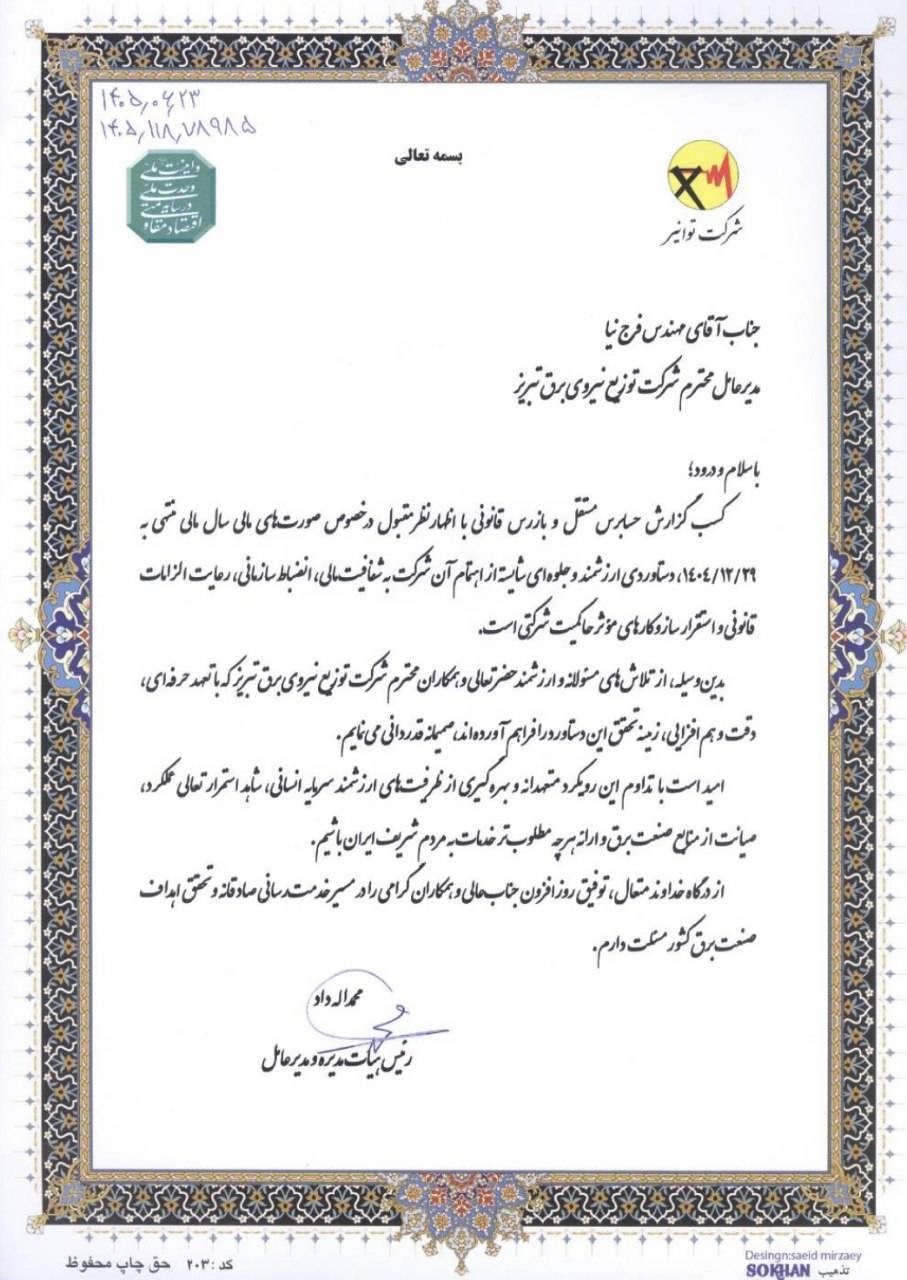 ۱۴۰۵,۰۶,۲۳
۱۴۰۵,۱۱۸,۷۸۹۸۵
بسمه تعالی
وحدت ملی
شرکت توانیر
جناب آقای مهندس فرج نیا
مدیرعامل محترم شرکت توزیع نیروی برق تبریز
با سلام و درود؛
کسب گزارش حسابرس مستقل و بازرس قانونی با اظهارنظر مقبول درخصوص صورت‌های مالی سال مالی منتهی به
۱۴۰۴/۱۲/۲۹، دستاوردی ارزشمند و جلوه‌ای شایسته از اهتمام آن شرکت به شفافیت مالی، انضباط سازمانی، رعایت الزامات
قانونی و استقرار سازوکارهای مؤثر حاکمیت شرکتی است.
بدین‌وسیله، از تلاش‌های مسئولانه و ارزشمند حضرتعالی و همکاران محترم شرکت توزیع نیروی برق تبریز که با تعهد حرفه‌ای،
دقت و هم افزایی، زمینه تحقق این دستاورد را فراهم آورده‌اند، صمیمانه قدردانی می‌نمایم.
امید است با تداوم این رویکرد متعهدانه و بهره‌گیری از ظرفیت‌های ارزشمند سرمایه انسانی، شاهد استمرار تعالی عملکرد،
صیانت از منابع صنعت برق و ارائه هرچه مطلوب‌تر خدمات به مردم شریف ایران باشیم.
از درگاه خداوند متعال، توفیق روزافزون جنابعالی و همکاران گرامی را در مسیر خدمت‌رسانی صادقانه و تحقق اهداف
صنعت برق کشور مسئلت دارم.
محمد اله داد
رئیس هیأت مدیره و مدیرعامل
کد : ۲۰۳ حق چاپ محفوظ
Desingn:saeid mirzaey
SOKHAN تذهیب